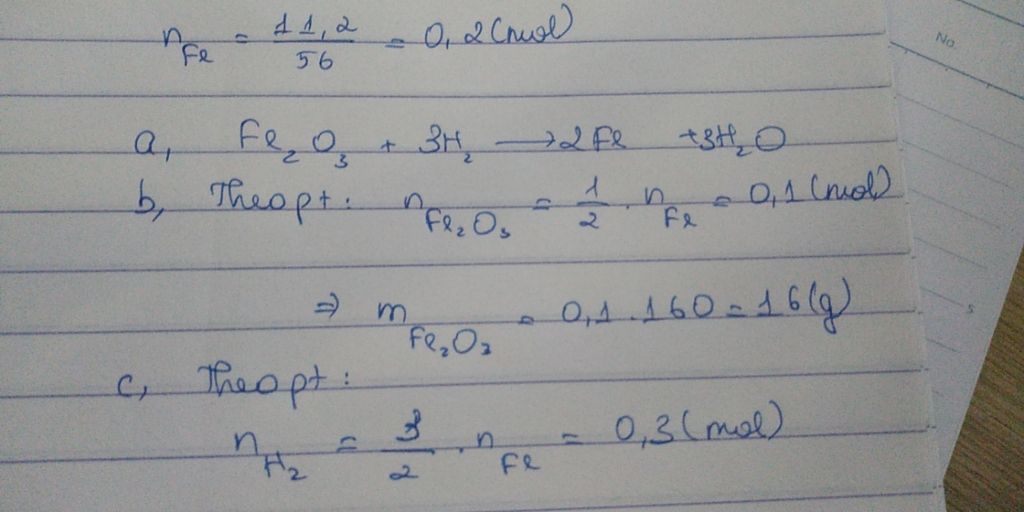 n_Fe = 11,2/56 = 0,2 (mol)
No.
a, Fe₂O₃ + 3H₂ → 2Fe + 3H₂O
b, Theo pt: n_Fe₂O₃ = 1/2 . n_Fe = 0,1 (mol)
⇒ m_Fe₂O₃ = 0,1 . 160 = 16 (g)
c, Theo pt:
n_H₂ = 3/2 . n_Fe = 0,3 (mol)